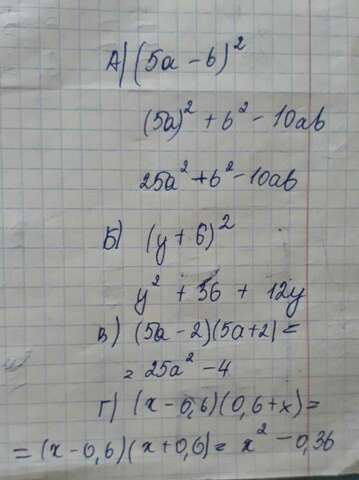 А) (5а - в)²
(5а)² + в² - 10ав
25а² + в² - 10ав
Б) (y + 6)²
y² + 36 + 12y
в) (5а - 2)(5а + 2) =
= 25а² - 4
г) (x - 0,6)(0,6 + x) =
= (x - 0,6)(x + 0,6) = x² - 0,36